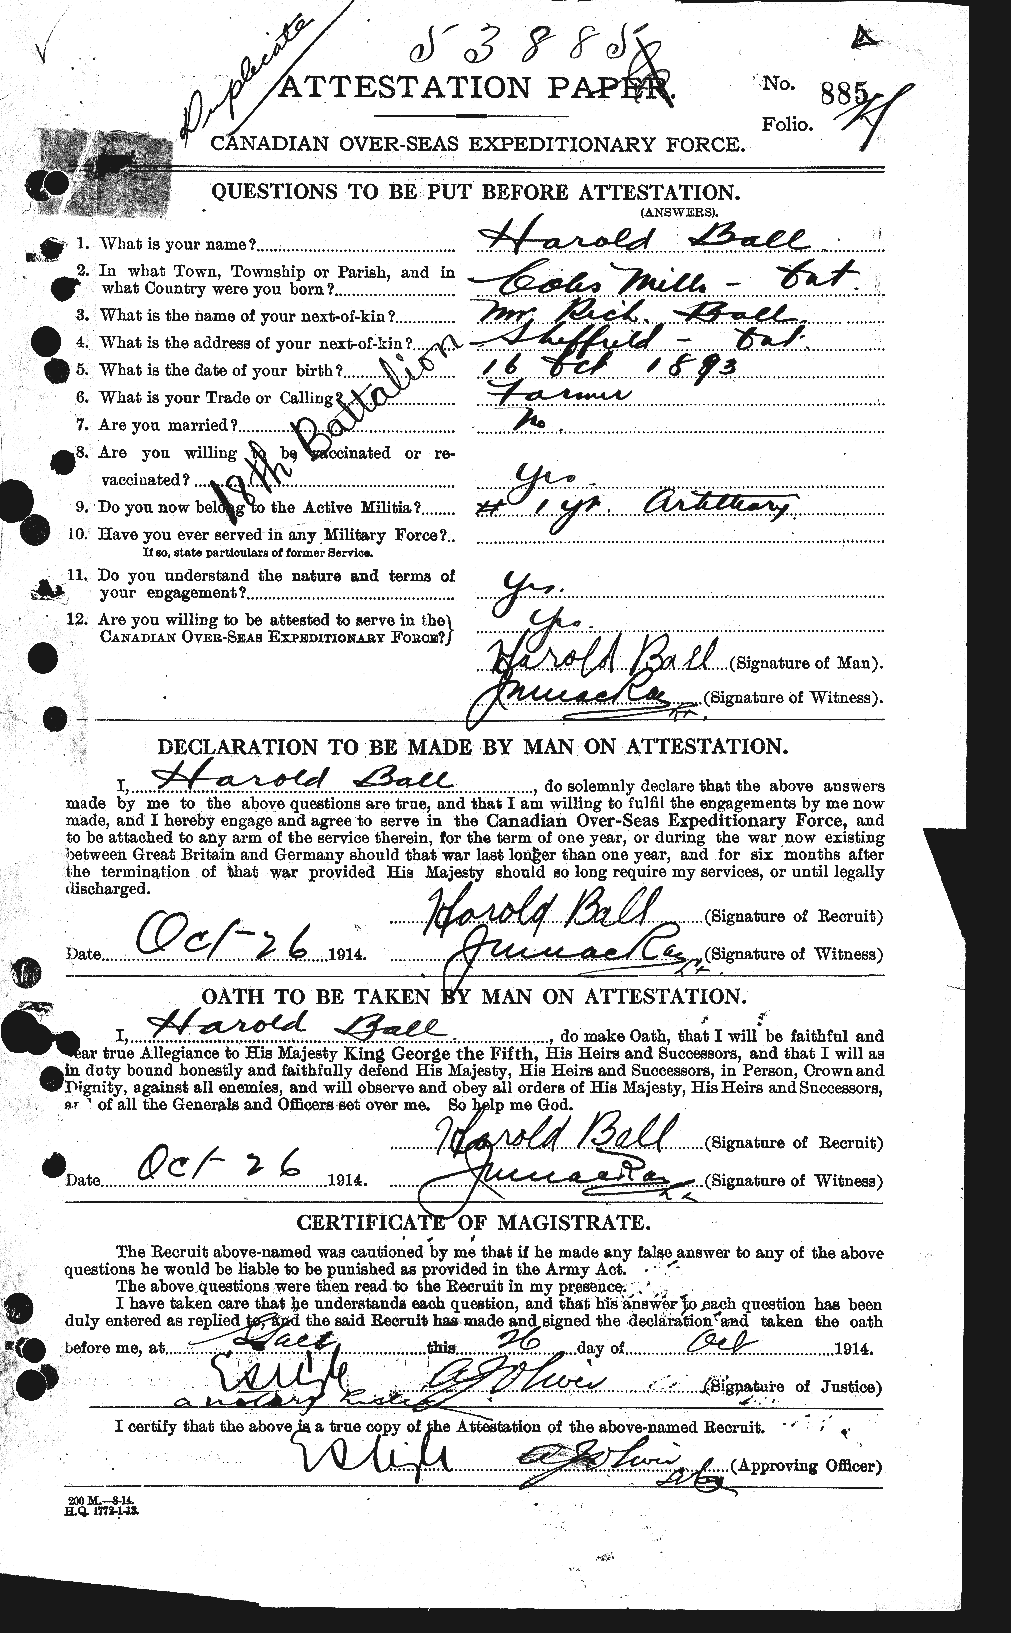 53885
Duplicate
ATTESTATION PAPER.
No. 885
Folio.
CANADIAN OVER-SEAS EXPEDITIONARY FORCE.
QUESTIONS TO BE PUT BEFORE ATTESTATION.
(ANSWERS).
1. What is your name? Harold Ball
2. In what Town, Township or Parish, and in
what Country were you born? Coles Mills - Ont.
3. What is the name of your next-of-kin? Mr. Rich. Ball
4. What is the address of your next-of-kin? Sheffield - Ont.
5. What is the date of your birth? 16 Oct 1893
6. What is your Trade or Calling? Farmer
7. Are you married? No.
18th Battalion
8. Are you willing to be vaccinated or re-
vaccinated? Yes.
9. Do you now belong to the Active Militia? 1 yr. Artillery
10. Have you ever served in any Military Force?
If so, state particulars of former Service.
11. Do you understand the nature and terms of
your engagement? Yes.
12. Are you willing to be attested to serve in the
CANADIAN OVER-SEAS EXPEDITIONARY FORCE? Yes.
Harold Ball (Signature of Man).
(Signature of Witness).
DECLARATION TO BE MADE BY MAN ON ATTESTATION.
I, Harold Ball, do solemnly declare that the above answers
made by me to the above questions are true, and that I am willing to fulfil the engagements by me now
made, and I hereby engage and agree to serve in the Canadian Over-Seas Expeditionary Force, and
to be attached to any arm of the service therein, for the term of one year, or during the war now existing
between Great Britain and Germany should that war last longer than one year, and for six months after
the termination of that war provided His Majesty should so long require my services, or until legally
discharged.
Harold Ball (Signature of Recruit)
Date Oct-26 1914. (Signature of Witness)
OATH TO BE TAKEN BY MAN ON ATTESTATION.
I, Harold Ball, do make Oath, that I will be faithful and
bear true Allegiance to His Majesty King George the Fifth, His Heirs and Successors, and that I will as
in duty bound honestly and faithfully defend His Majesty, His Heirs and Successors, in Person, Crown and
Dignity, against all enemies, and will observe and obey all orders of His Majesty, His Heirs and Successors,
and of all the Generals and Officers set over me. So help me God.
Harold Ball (Signature of Recruit)
Date Oct-26 1914. (Signature of Witness)
CERTIFICATE OF MAGISTRATE.
The Recruit above-named was cautioned by me that if he made any false answer to any of the above
questions he would be liable to be punished as provided in the Army Act.
The above questions were then read to the Recruit in my presence.
I have taken care that he understands each question, and that his answer to each question has been
duly entered as replied to, and the said Recruit has made and signed the declaration and taken the oath
before me, at Galt this 26 day of Oct 1914.
(Signature of Justice)
a notary
I certify that the above is a true copy of the Attestation of the above-named Recruit.
(Approving Officer)
200 M.—8-14.
H.Q. 1772-1-13.